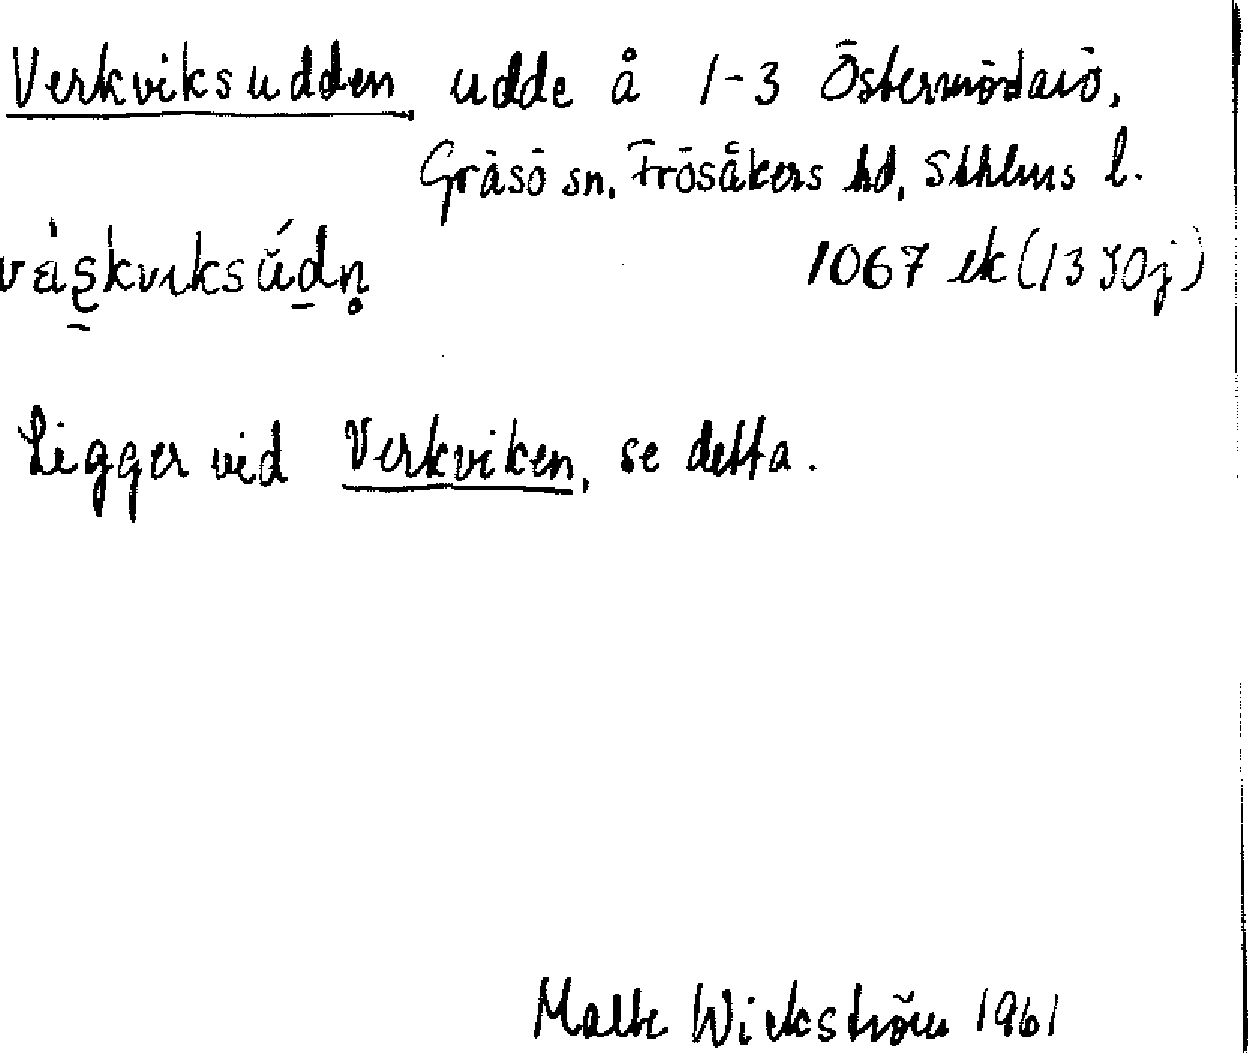 Verkviksudden, udde å 1-3 Östermörtarö,
Gräsö sn, Frösåkers hd, Sthlms l.
1067 ek (13 I 0j)
Ligger vid Verkviken, se detta.
Malte Wickström 1961